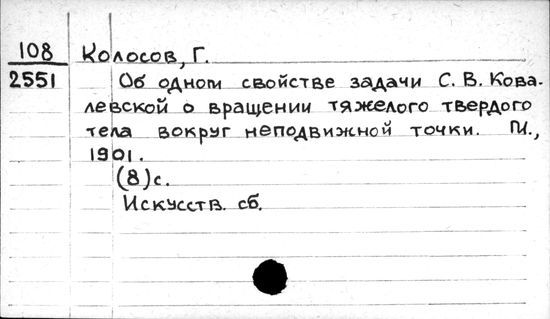 108
2551
Колосов, Г.
Об одном свойстве задачи С. В. Кова-
левской о вращении тяжелого твердого
тела вокруг неподвижной точки. М.,
1901.
(8)с.
Искусств. сб.